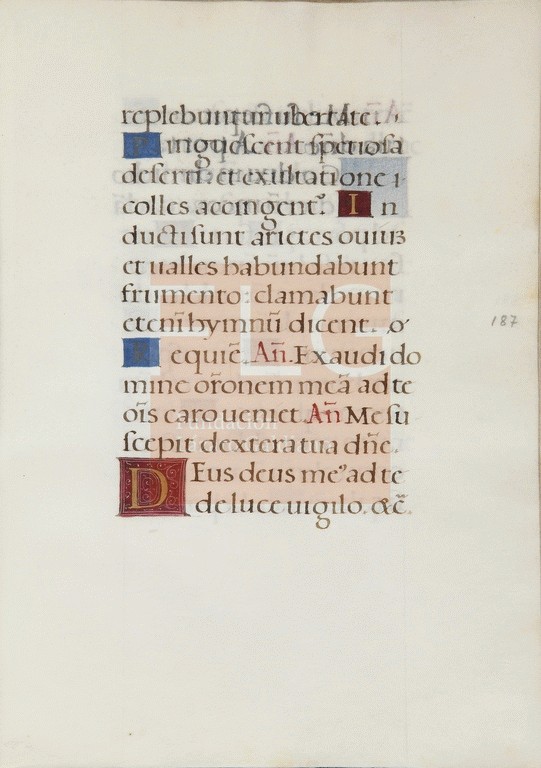 replebuntur ubertate.
Pinguescent spetiosa
deserti: et exultatione
colles accingent˜. In
ducti sunt arietes ouiuȝ
et ualles habundabunt
frumento: clamabunt
etenī hymnū dicent.
Requiē. Añ. Exaudi do
mine or̃onem meã ad te
oı̃s caro ueniet. Añ Me su
scepit dextera tua dñe.
Deus deus me⁹ ad te
de luce uigilo. &c̃.
187
FLG
Fundación